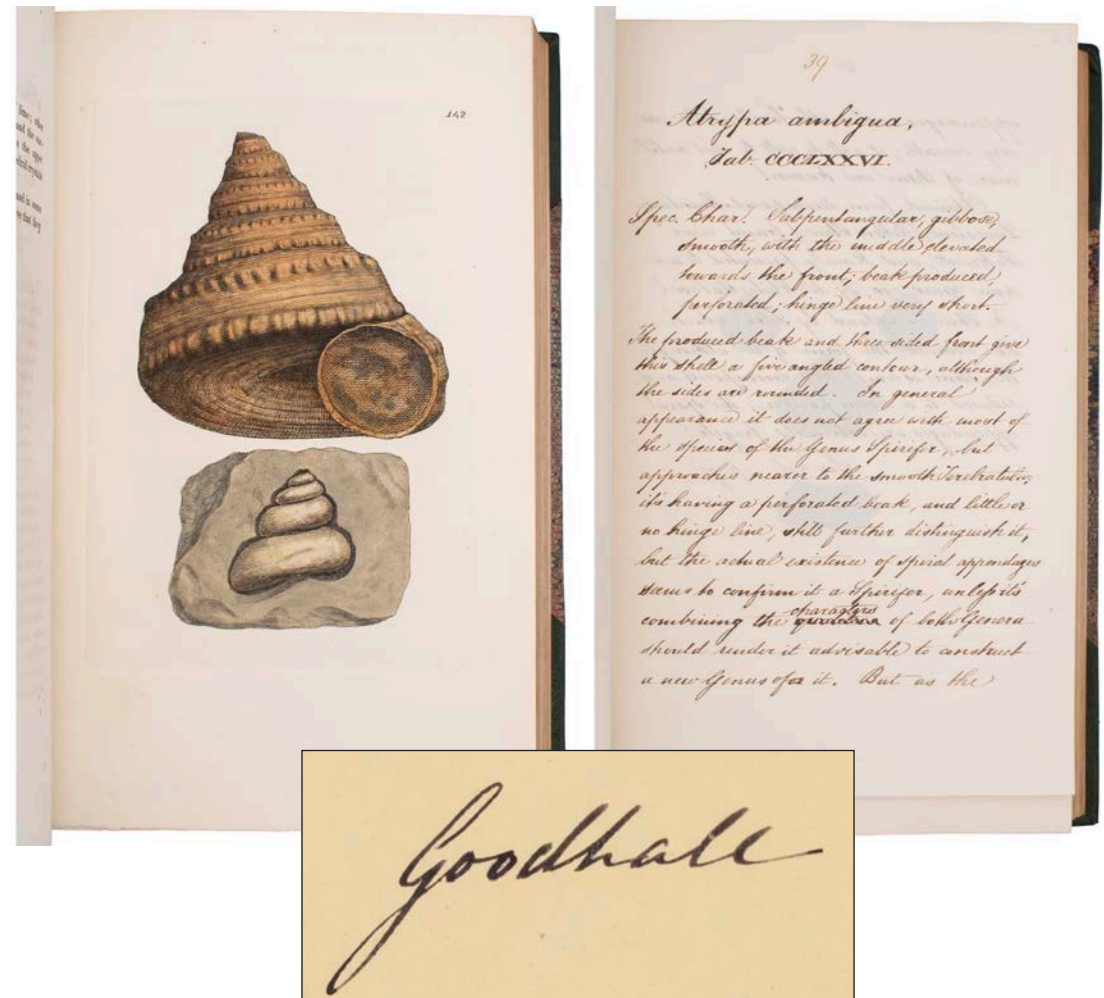 lime; othe
142
39
Atrypa ambigua,
Tab. CCCLXXVI.
Spec. Char. Subpentangular, gibbose,
smooth, with the middle elevated
towards the front; beak produced,
perforated; hinge line very short.
The produced beak and three sided front give
this shell a five angled contour, although
the sides are rounded. In general
appearance it does not agree with most of
the species of the Genus Spirifer, but
approaches nearer to the smooth Terebratulæ,
its having a perforated beak, and little or
no hinge line, still further distinguish it,
but the actual existence of spiral appendages
seems to confirm it a Spirifer, unless its
combining the characters of both Genera
should render it advisable to construct
a new Genus for it. But as the
Goodhall